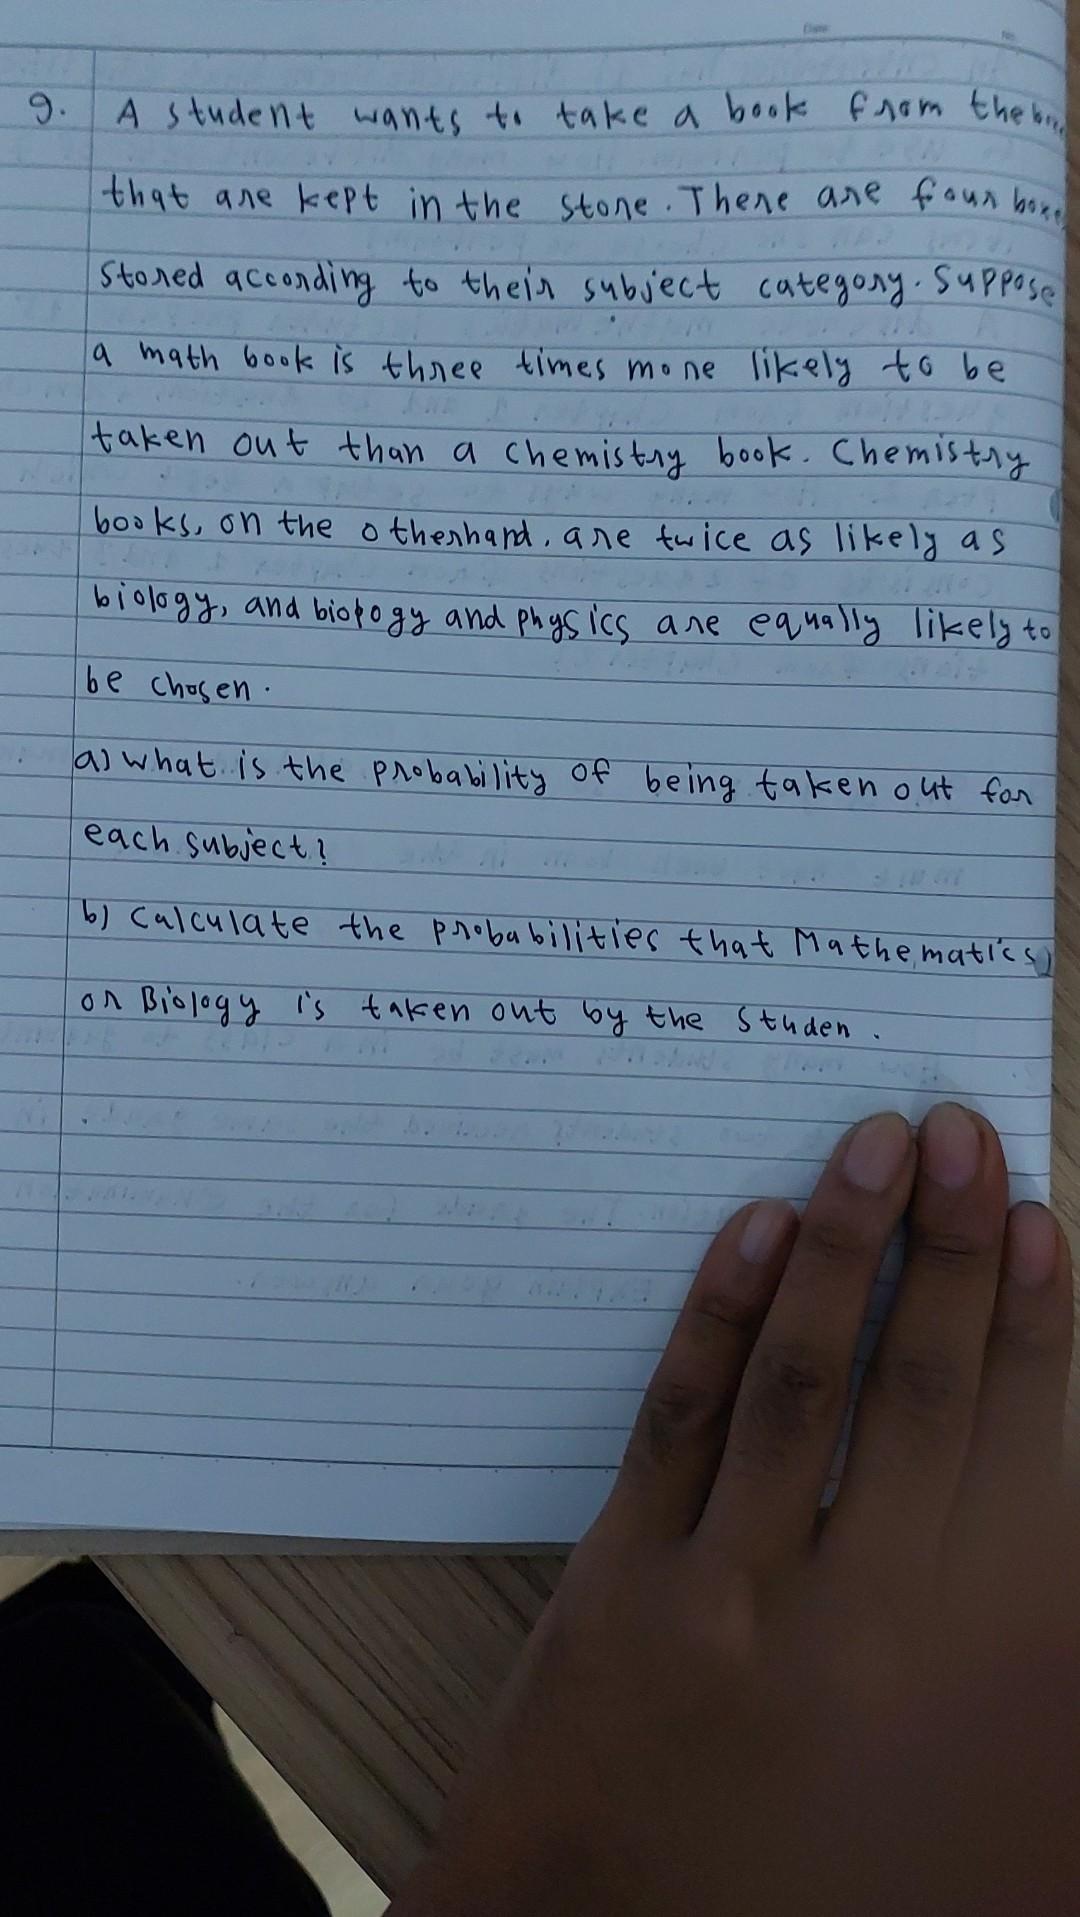 9. A student wants to take a book from the
that are kept in the store. There are four boxes
stored according to their subject category. Suppose
a math book is three times more likely to be
taken out than a chemistry book. Chemistry
books, on the otherhard, are twice as likely as
biology, and biology and physics are equally likely to
be chosen.
a) what is the probability of being taken out for
each subject?
b) Calculate the probabilities that Mathematics
or Biology is taken out by the studen.